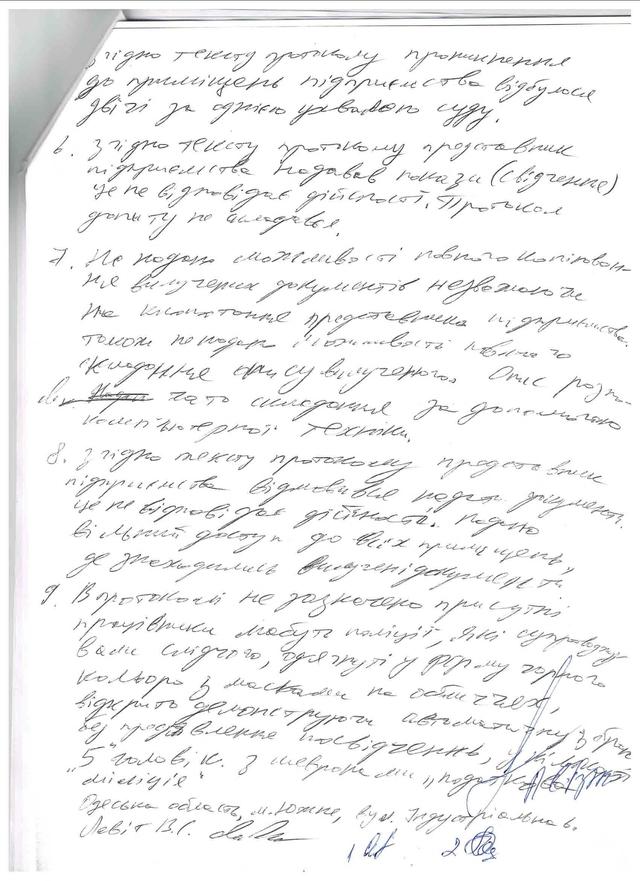 згідно тексту протоколу проникнення
до приміщень підприємства відбулося
двічі за однією ухвалою суду.
6. Згідно тексту протоколу представник
підприємства надавав покази (свідчення)
це не відповідає дійсності. Протокол
допиту не складався.
7. Не надано можливості повного копіюван-
ня вилучених документів незважаючи
на клопотання представника підприємства.
також не надано можливості повного
складання опису вилученого. Опис розпо-
чато складання за допомогою
комп'ютерної техніки.
8. Згідно тексту протоколу представник
підприємства відмовився надати документи.
це не відповідає дійсності. Надано
вільний доступ до всіх приміщень,
де знаходились вилучені документи
9. В протоколі не зазначено присутні
працівники мабуть поліції, які супроводжу
вали слідчого, одягнуті у форму чорного
кольору з масками на обличчях,
відкрито демонструючи автоматичну зброю
без пред'явлення посвідчень, у кількості
"5" чоловік. з шевронами "податкова
міліція"
Одеська область, м. Южне, вул. Індустріальна 6.
Левіт В.С.
1 2